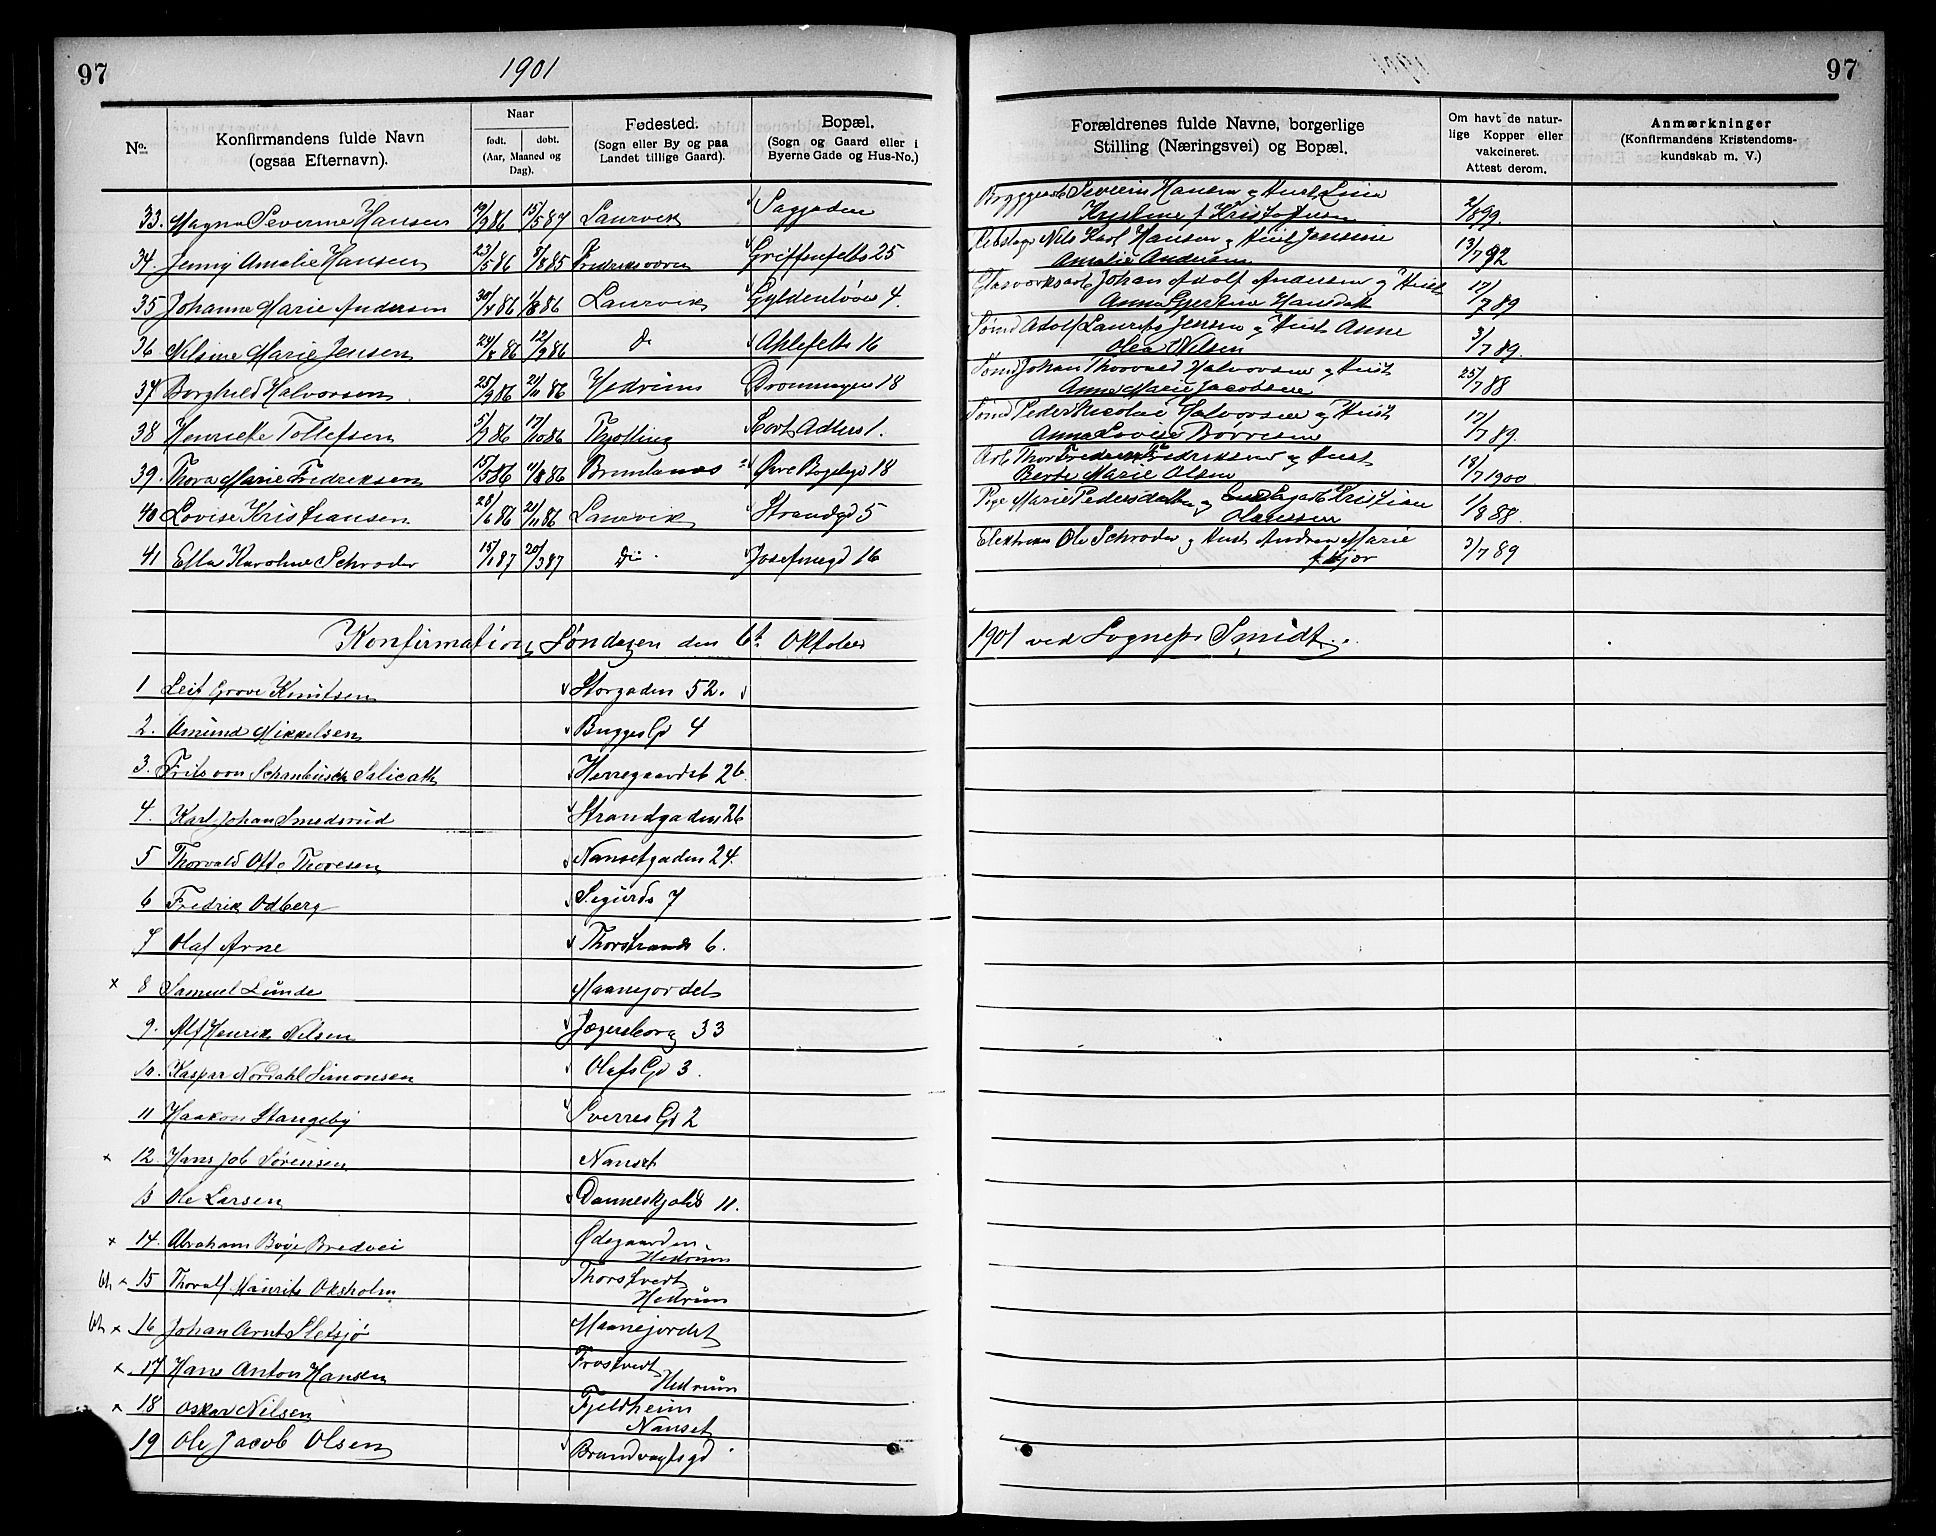 97
1901
97
No.
Konfirmandens fulde Navn
(ogsaa Efternavn).
Naar
født.
døbt.
(Aar, Maaned og
Dag).
Fødested.
(Sogn eller By og paa
Landet tillige Gaard).
Bopæl.
(Sogn og Gaard eller i
Byerne Gade og Hus-No.)
Forældrenes fulde Navne, borgerlige
Stilling (Næringsvei) og Bopæl.
Om havt de natur-
lige Kopper eller
vakcineret.
Attest derom.
Anmærkninger
(Konfirmandens Kristendoms-
kundskab m. V.)
33. Magna Severine Hansen 19/9 86 15/5 87 Laurvik Severin Hansen og Hust Lina 2/8 99.
34. Jenny Amalie Hansen 23/5 86 Fredriksværn Griffenfelts 25 Nils Karl Hansen og Hust 13/7 92
Amalie Andersen
35 Johanne Marie Andersen 30/4 86 1/8 86 Laurvik Gyldenløves 4. Glasværksarb Johan Adolf Andersen og Hust 17/7 89
Anna Hansdatt
36 Nelsine Marie Jensen 24/8 86 12/9 86 do Ahlefelts 16 Sømd Adolf Lauritz Jensen og Hust Anne 3/7 89.
Olea Nilsen
37 Borghild Halvorsen 25/9 86 21/11 86 Hedrum Dronningens 18 Sømd Johan Thorvald Halvorsen og Hust 25/7 88
Anne Marie Jacobsen
38 Henriette Tollefsen 5/7 86 17/10 86 Thjølling Cort Adlers 1. Sømd Peder Nicolai Halvorsen og Hust 17/7 89.
Anna Lovise Børresen
39. Thora Marie Fredriksen 15/5 86 1/8 86 Brunlanes Øvre Bøgelygd 18 Arb Thor Fredriksen og Hust 18/7 1900
Berte Marie Olsen
40 Lovise Kristiansen 28/6 86 21/11 86 Laurvik Strandgd 5 Pige Marie Pedersdatter og Kristian 1/8 88.
41 Ella Karoline Schrøder 15/1 87 20/3 87 Do Josefinegd 16 Ole Schrøder og Hust Andrea Marie 3/7 89
f Kjær
Konfirmation Søndagen den 6t Oktober 1901 ved Sognepr Smidt.
1 Leif Grove Knutsen Storgaden 52.
2. Amund Mikkelsen Bugges Gd 4
3. Frits von Schanbusch Salicath Herregaardst 26.
4. Karl Johan Smedsrud Strandgaden 26
5 Thorvald Otto Thoresen Nansetgaden 24.
6 Fredrik Odberg Sigurds 7
7 Olaf Arne Thorstrands 6.
x 8 Samuel Lunde Maanejordet
9. Alf Henrik Nilsen Jægersborg 33
10. Kaspar Nordahl Simonsen Olafs Gd 3.
11 Haakon Stangeby Sverres Gd 2
x 12. Hans Job Sørensen Nanset
13 Ole Larsen Danneskjolds 11.
x 14. Abraham Boye Bredvei Ødegaarden
Hedrum
x 15 Thoralf Maurits Oksholm Thorstvedt
Hedrum
x 16 Johan Arnt Sletsjø Maanejordet
x 17 Hans Anton Hansen Frostvedt
Hedrum
x 18 Oskar Nilsen Fjeldheim
Nanset
19 Ole Jacob Olsen Brandvagtsgd